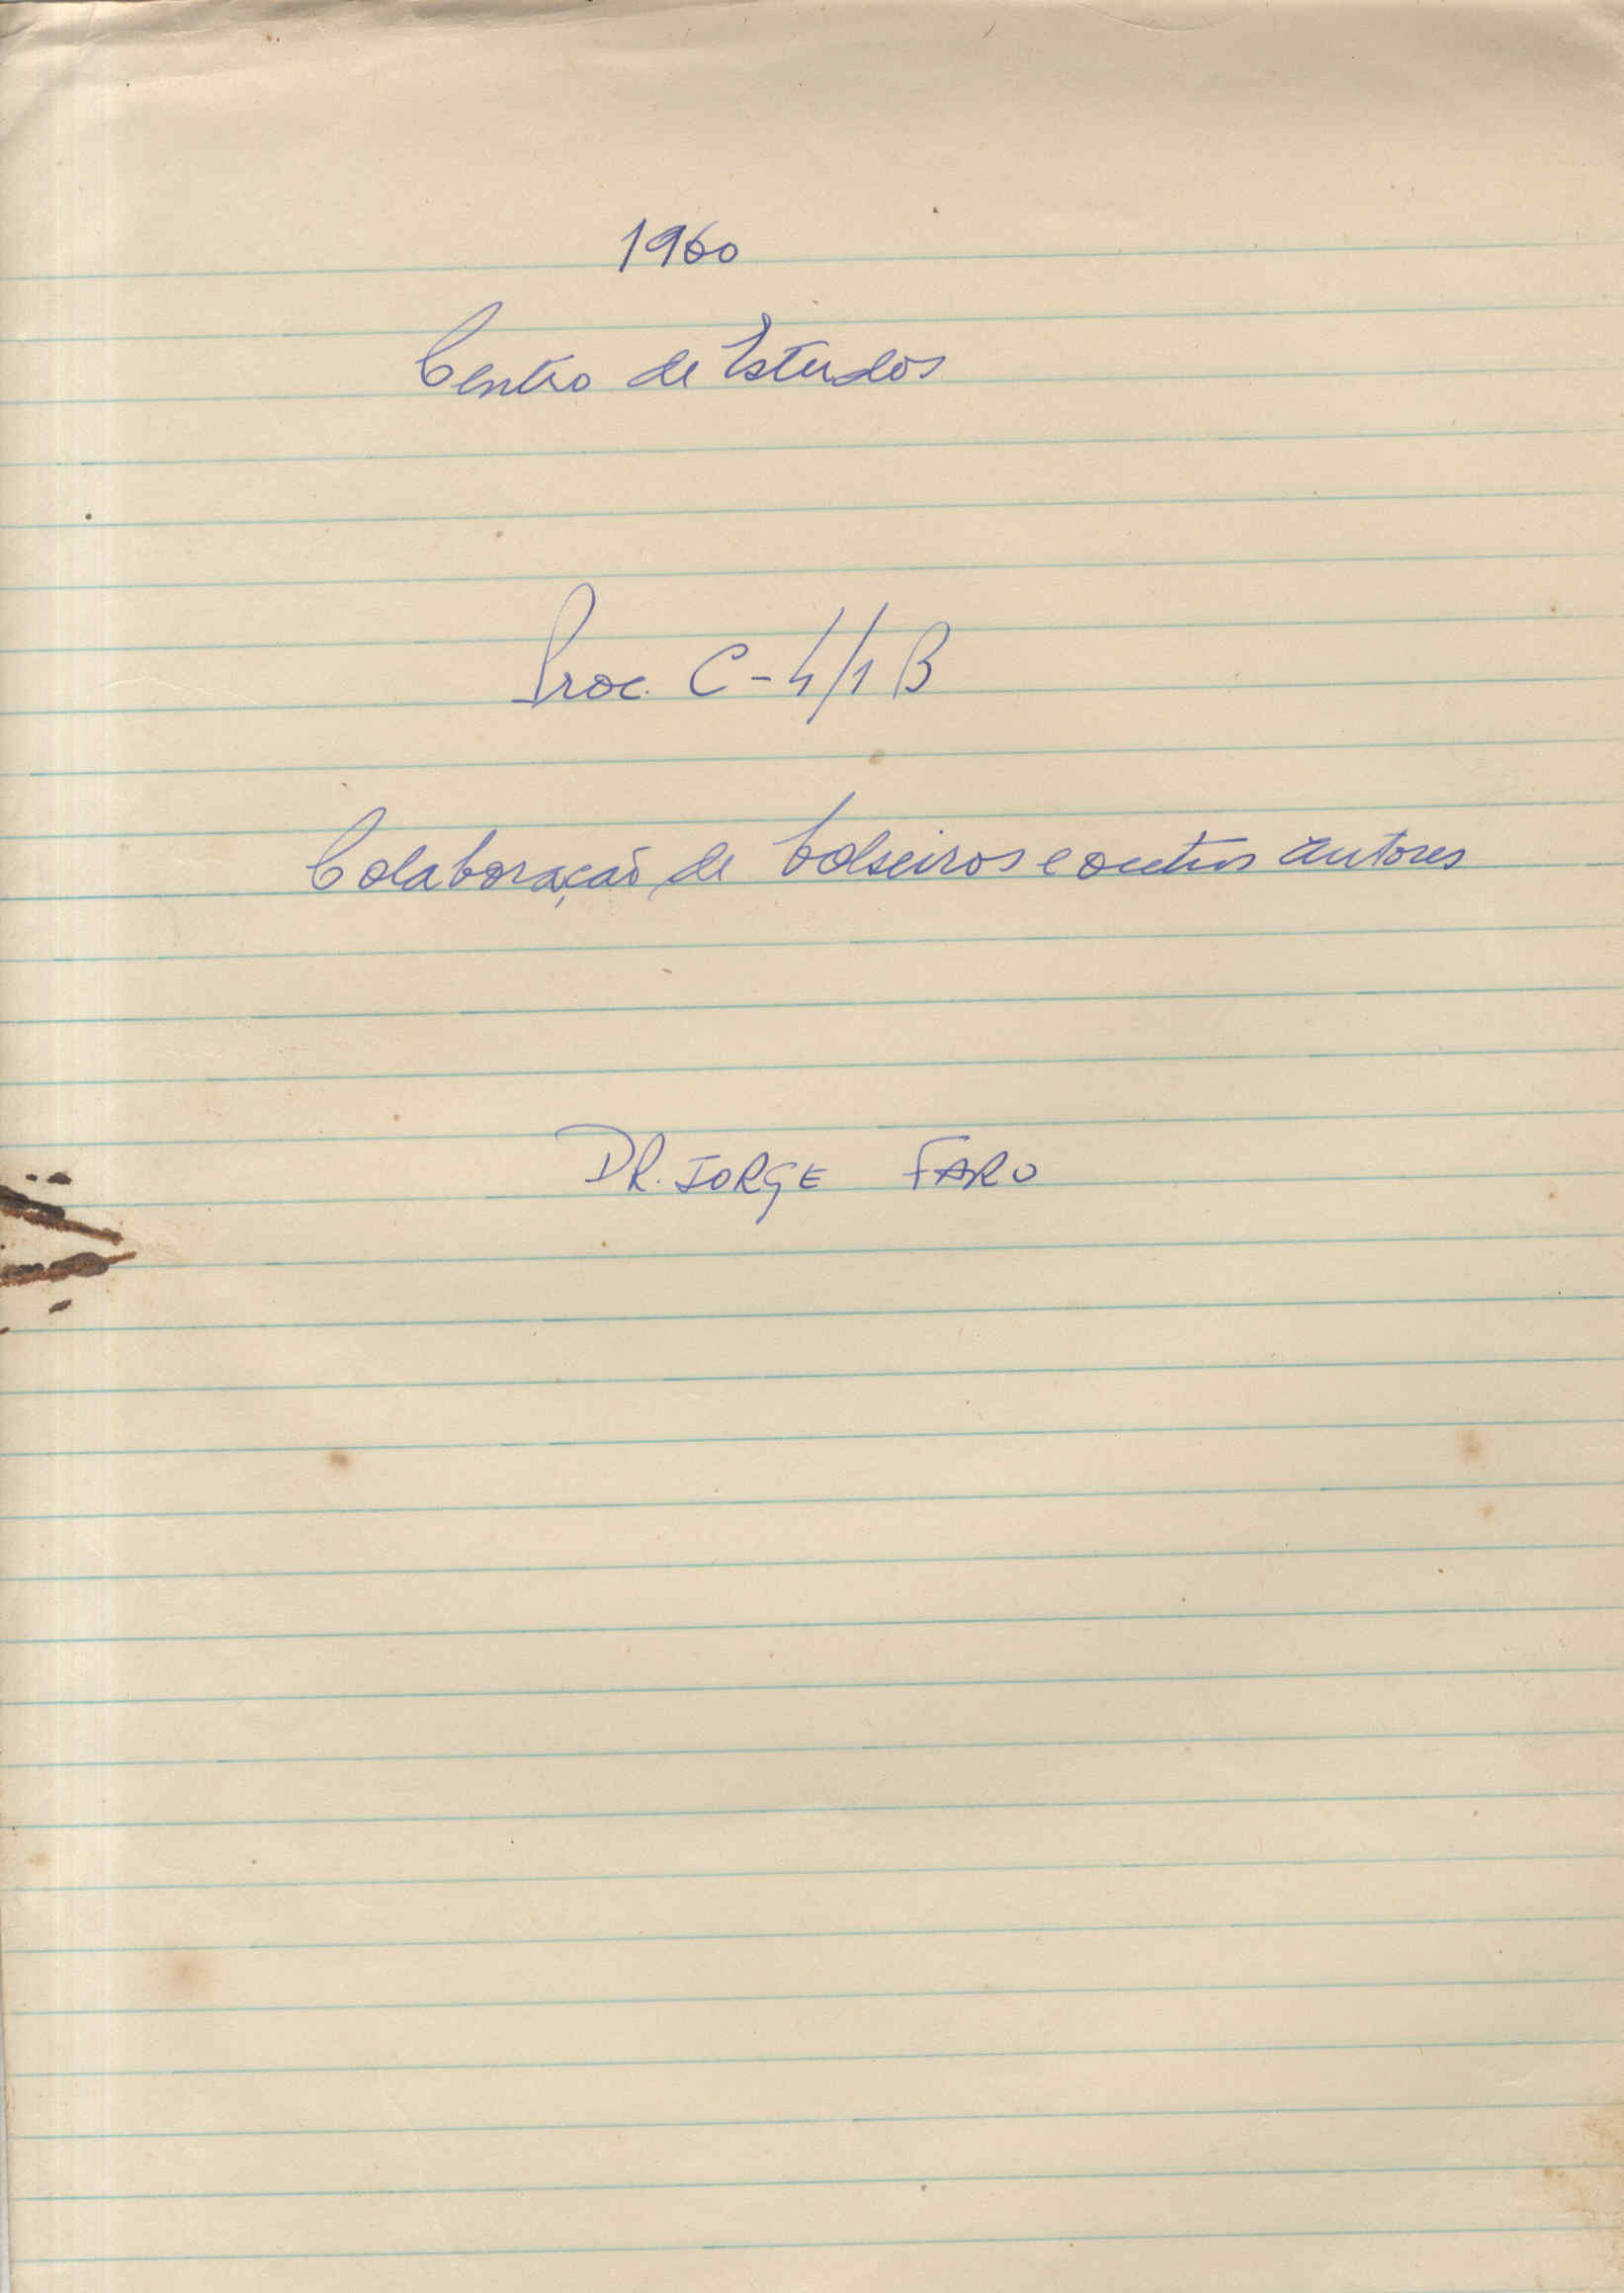 1960
Centro de Estudos
Proc. C-4/1 B
Colaboração de bolseiros e outros autores
DR. JORGE FARO